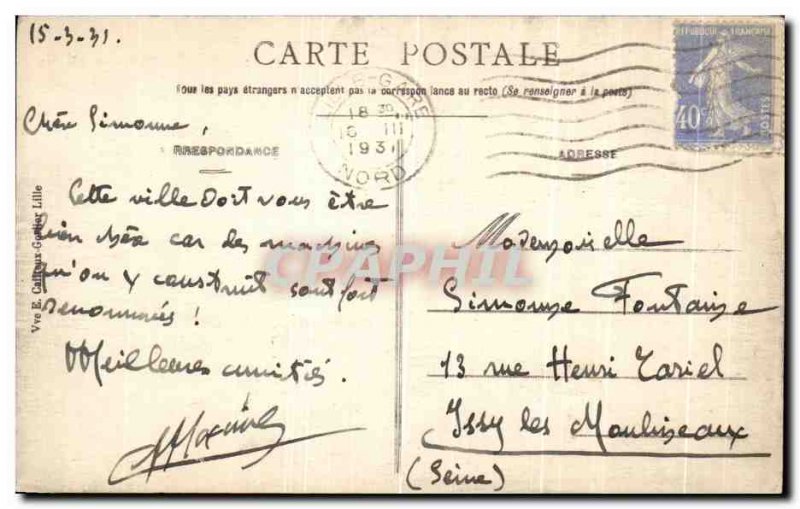 15-3-31.
CARTE POSTALE
Tous les pays étrangers n'acceptent pas la correspondance au recto (Se renseigner à la poste)
LILLE-GARE
18 30
16 III
1931
NORD
REPUBLIQUE FRANÇAISE
40c
POSTES
Chère Simonne,
RRESPONDANCE
ADRESSE
Cette ville doit vous être
bien chère car des machines
qu'on y construit sont fort
renommées !
Meilleures amitiés.
Mademoiselle
Simonne Fontaine
13 rue Henri Tariel
Issy les Moulineaux
(Seine)
Vve E. Cailteux-Gortier Lille
CPAPHIL